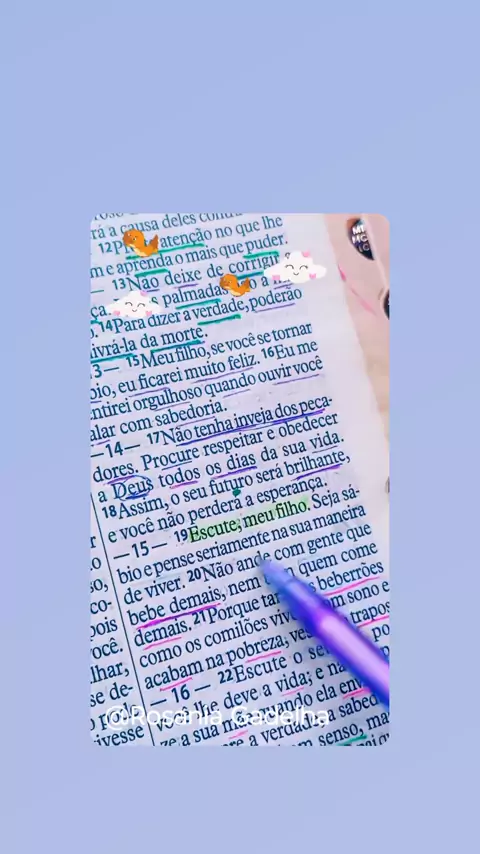 rá a causa deles contra
12 atenção no que lhe
m e aprenda o mais que puder.
— 13 Não deixe de corrigir
palmadas
14 Para dizer a verdade, poderão
ivrá-la da morte.
3 — 15 Meu filho, se você se tornar
bio, eu ficarei muito feliz. 16 Eu me
ntirei orgulhoso quando ouvir você
alar com sabedoria.
— 14 — 17 Não tenha inveja dos peca-
dores. Procure respeitar e obedecer
a Deus todos os dias da sua vida.
18 Assim, o seu futuro será brilhante,
e você não perderá a esperança.
— 15 — 19 Escute, meu filho. Seja sá-
bio e pense seriamente na sua maneira
de viver. 20 Não ande com gente que
bebe demais, nem quem come
demais. 21 Porque beberrões
como os comilões sono e
acabam na pobreza, trapos
— 16 — 22 Escute o
vo lhe deve a vida; e
ze a sua quando ela
a verdade
senso,
so,
co-
pois
você.
lhar,
se de-
ivesse
@Rosania Gadelha